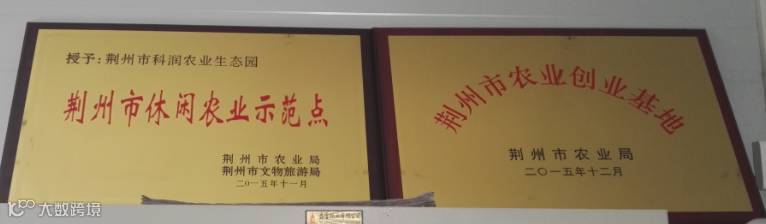 授予：荆州市科润农业生态园
荆州市休闲农业示范点
荆州市农业局
荆州市文物旅游局
二〇一五年十一月
荆州市农业创业基地
荆州市农业局
二〇一五年十二月
大数跨境